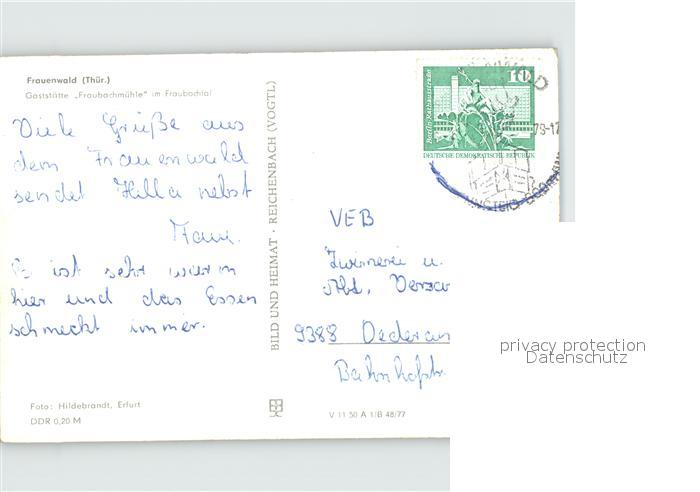 Frauenwald (Thür.)
Gaststätte „Fraubachmühle" im Fraubachtal
Viele Grüße aus
dem Frauenwald
sendet Hilla nebst
Fam.
Es ist sehr warm
hier und das Essen
schmeckt immer.
Foto: Hildebrandt, Erfurt
DDR 0,20 M
BILD UND HEIMAT · REICHENBACH (VOGTL)
V 11 50 A 1/B 48/77
10
Berlin, Rathausstraße
DEUTSCHE DEMOKRATISCHE REPUBLIK
VEB
Zwirnerei u.
Abt. Versa
9388 Oederan
Bahnhofstr.
privacy protection
Datenschutz